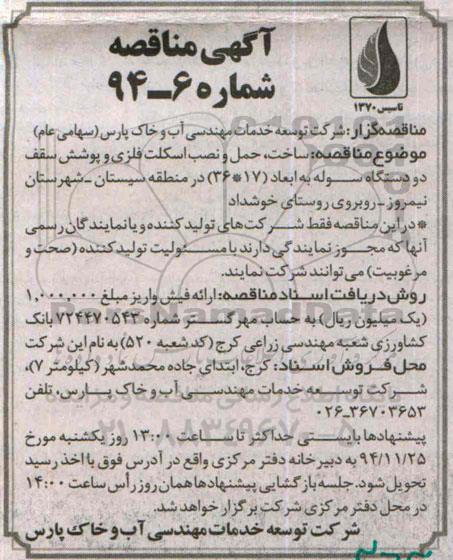 آگهی مناقصه
شماره ۶ـ۹۴
تاسیس ۱۳۷۰
مناقصه‌گزار: شرکت توسعه خدمات مهندسی آب و خاک پارس (سهامی عام)
موضوع مناقصه: ساخت، حمل و نصب اسکلت فلزی و پوشش سقف
دو دستگاه سوله به ابعاد (۱۷*۳۶) در منطقه سیستان ـ شهرستان
نیمروز ـ روبروی روستای خوشداد
* در این مناقصه فقط شرکت‌های تولید کننده و یا نمایندگان رسمی
آنها که مجوز نمایندگی دارند با مسئولیت تولید کننده (صحت و
مرغوبیت) می‌توانند شرکت نمایند.
روش دریافت اسناد مناقصه: ارائه فیش واریز مبلغ ۱,۰۰۰,۰۰۰
(یک میلیون ریال) به حساب مهر گستر شماره ۷۲۴۴۷۰۵۴۳ بانک
کشاورزی شعبه مهندسی زراعی کرج (کد شعبه ۵۲۰) به نام این شرکت
محل فروش اسناد: کرج، ابتدای جاده محمدشهر (کیلومتر ۷)،
شرکت توسعه خدمات مهندسی آب و خاک پارس، تلفن
۰۲۶-۳۶۷۰۳۶۵۳
پیشنهادها بایستی حداکثر تا ساعت ۱۳:۰۰ روز یکشنبه مورخ
۹۴/۱۱/۲۵ به دبیرخانه دفتر مرکزی واقع در آدرس فوق با اخذ رسید
تحویل شود. جلسه بازگشایی پیشنهادها همان روز رأس ساعت ۱۴:۰۰
در محل دفتر مرکزی شرکت برگزار خواهد شد.
شرکت توسعه خدمات مهندسی آب و خاک پارس